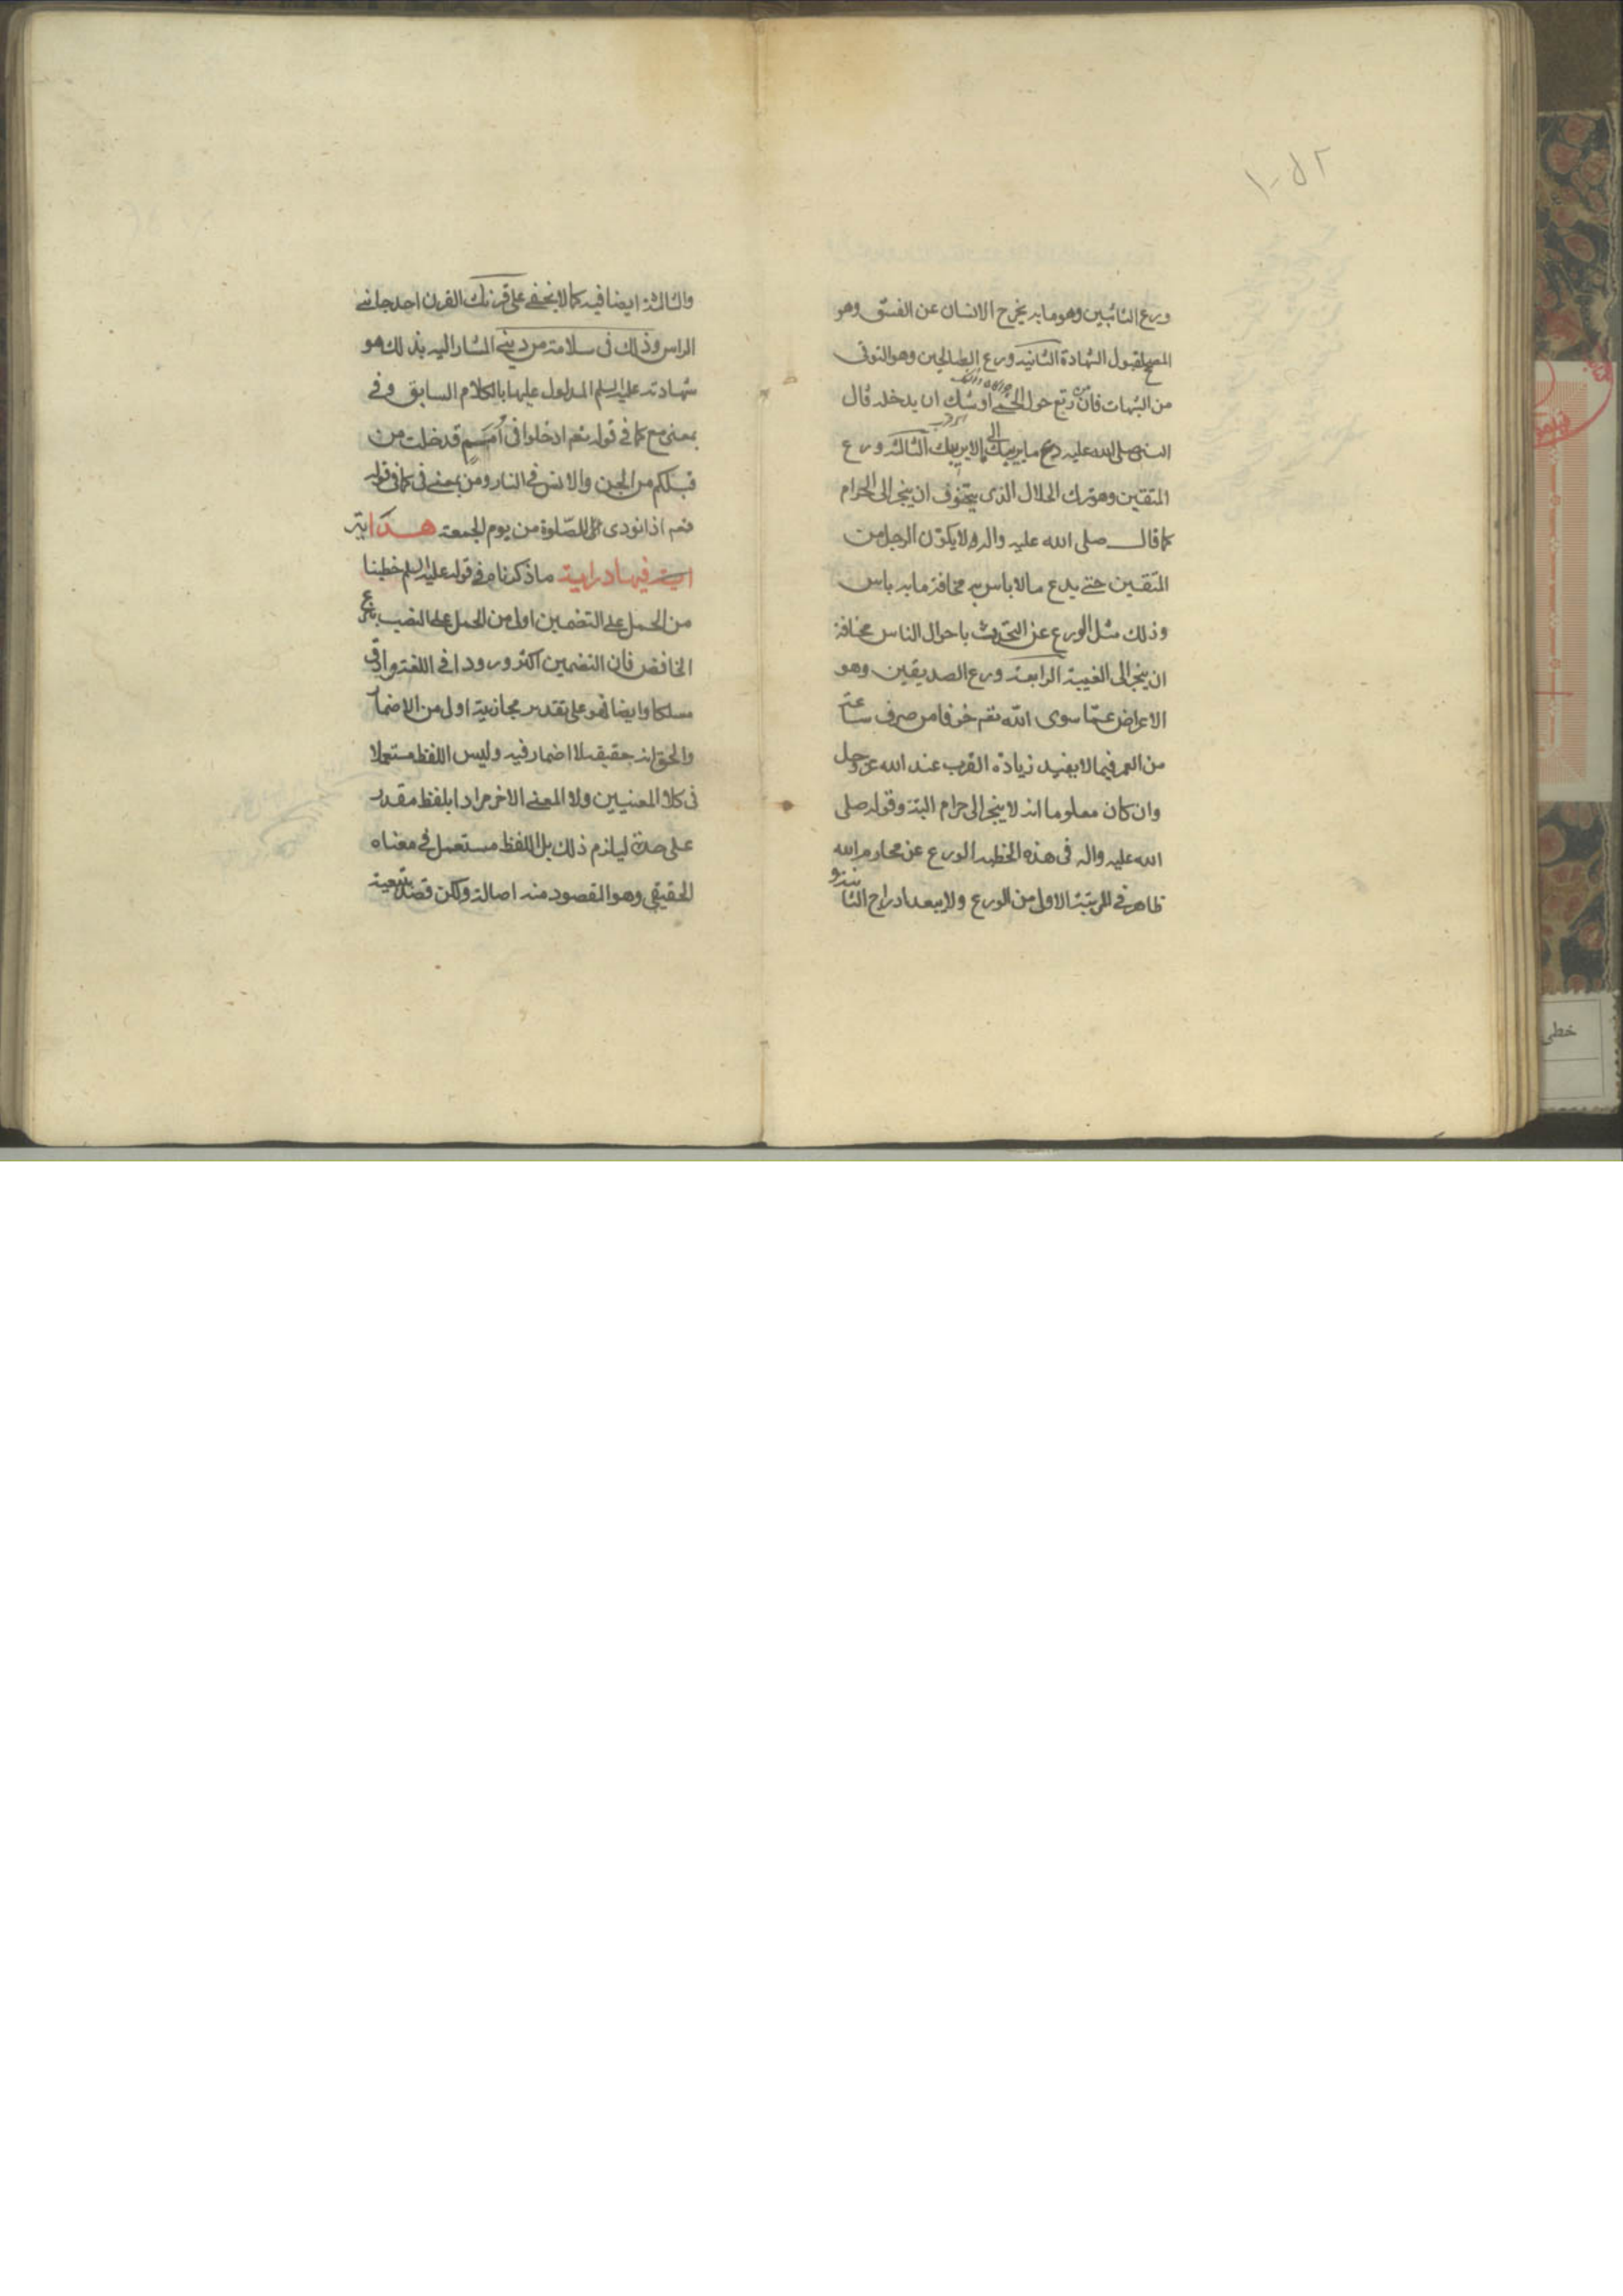 ورع التائبين وهو ما به يخرج الانسان عن الفسق وهو
المصحح لقبول الشهادة الثانية ورع الصالحين وهو التوقى
من الشبهات فان من رتع حول الحمى اوشك ان يدخله قال
النبى صلى الله عليه دع ما يريبك الى ما لا يريبك الثالثة ورع
المتقين وهو ترك الحلال الذى يتخوف ان ينجر الى الحرام
كما قال صلى الله عليه واله لا يكون الرجل من
المتقين حتى يدع ما لا باس به مخافة ما به باس
وذلك مثل الورع عن التحدث باحوال الناس مخافة
ان ينجر الى الغيبة الرابعة ورع الصديقين وهو
الاعراض عما سوى الله تعم خوفا من صرف ساعة
من العمر فيما لا يفيد زيادة القرب عند الله عز وجل
وان كان معلوما انه لا ينجر الى حرام البتة وقوله صلى
الله عليه واله فى هذه الخطبه الورع عن محارم الله
ظاهر فى المرتبة الاولى من الورع ولا يبعد ادراج الثانية و
والثالثة ايضا فيه كما لا يخفى على قرنك القرن احد جانبى
الراس وذلك فى سلامة من دينى المشار اليه بذلك هو
شهادته عليه السلم المدلول عليها بالكلام السابق وفى
بمعنى مع كما فى قوله تعم ادخلوا فى أمم قد خلت من
قبلكم من الجن والانس فى النار ومن بمعنى فى كما فى قوله
تعم اذا نودى للصلوة من يوم الجمعة هداية
فيها دراية ما ذكرناه فى قوله عليه السلم خطبنا
من الحمل على التضمين اولى من الحمل على النصب بنزع
الخافض فان التضمين اكثر ورودا فى اللغة وادق
مسلكا وايضا فهو على تقدير مجازيته اولى من الاضمار
والحق انه حقيقة لا اضمار فيه وليس اللفظ مستعملا
فى كلا المعنيين ولا المعنى الاخر مرادا بلفظ مقدر
على حدة ليلزم ذلك بل اللفظ مستعمل فى معناه
الحقيقى وهو المقصود منه اصالة ولكن قصد بتبعية
خطى